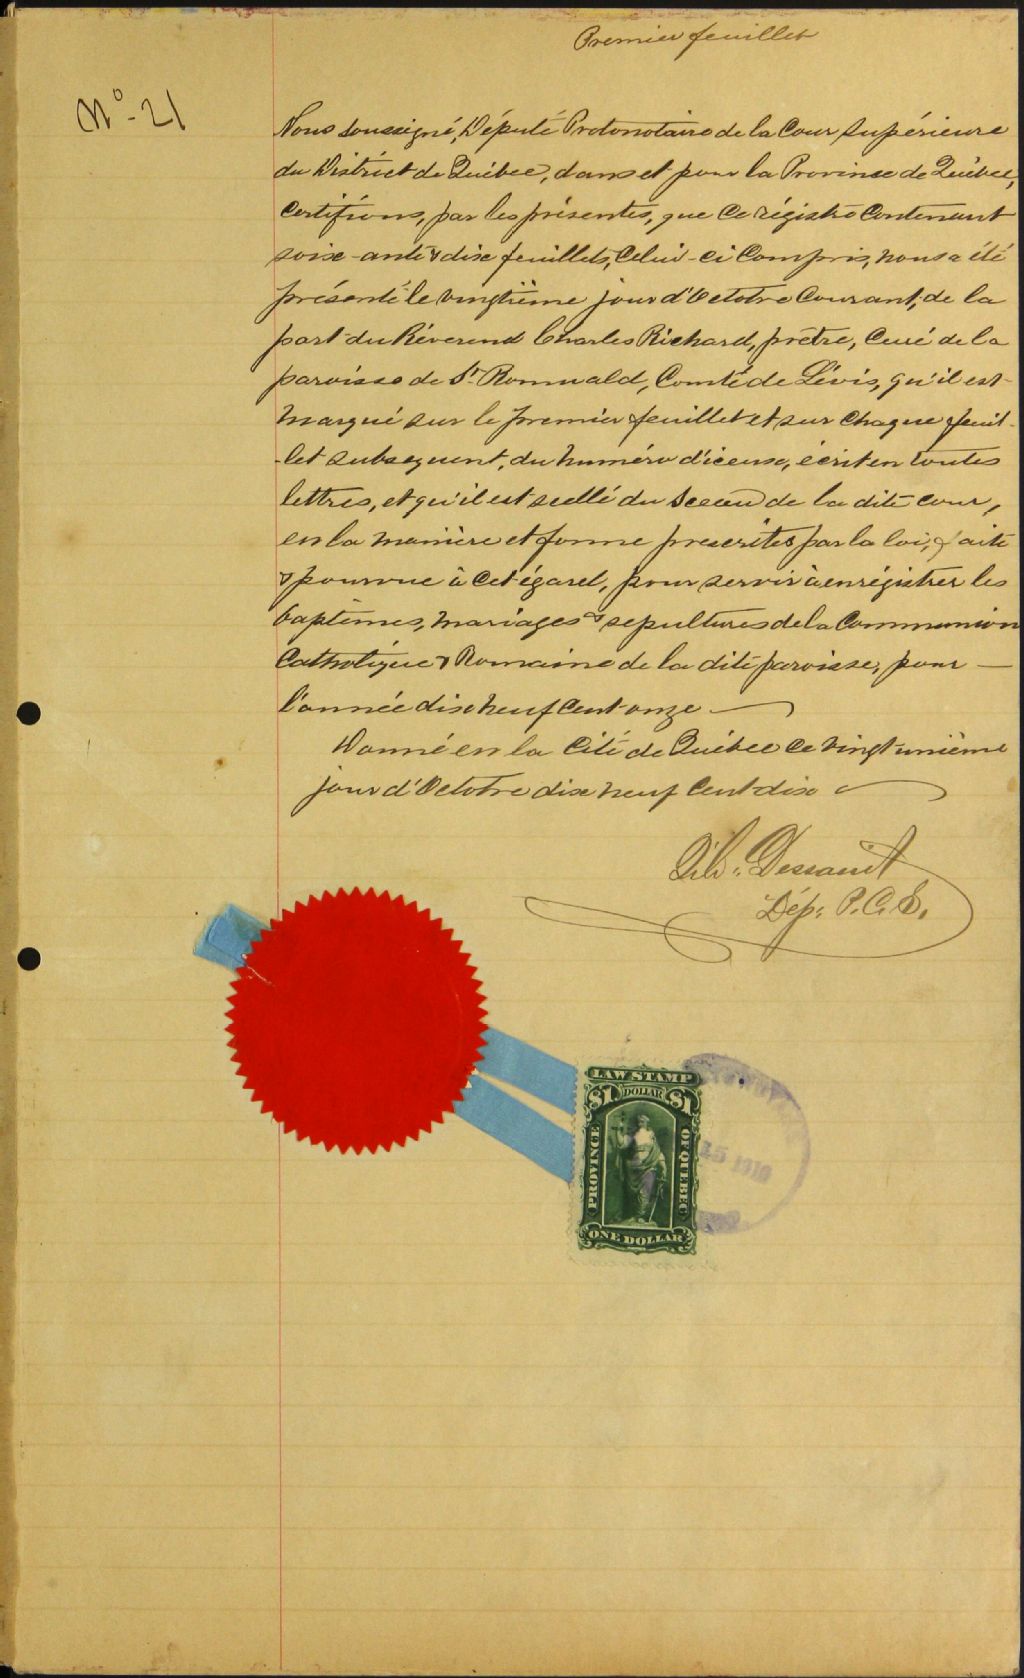 Premier feuillet
No - 21
Nous soussigné, Député Protonotaire de la Cour Supérieure
du District de Québec, dans et pour la Province de Québec,
Certifions, par les présentes, que ce régistre contenant
soix-ante & dix feuillets, celui-ci compris, nous a été
présenté le vingtième jour d'Octobre courant, de la
part du Révérend Charles Richard, prêtre, Curé de la
paroisse de St Romuald, Comté de Lévis, qu'il est
marqué sur le premier feuillet et sur chaque feuil-
-let subsequent, du numéro d'iceux, écrit en toutes
lettres, et qu'il est scellé du sceau de la dite cour,
en la manière et forme prescrites par la loi, faite
& pourvue à cet égard, pour servir à enrégistrer les
baptêmes, mariages & sepultures de la Communion
Catholique & Romaine de la dite paroisse, pour
l'année dix neuf cent onze
Donné en la Cité de Québec ce vingt-unième
jour d'Octobre dix neuf cent dix
Dessault
Dép. P.C.S.
LAW STAMP
$1 DOLLAR $1
PROVINCE OF QUEBEC
ONE DOLLAR
15 1910